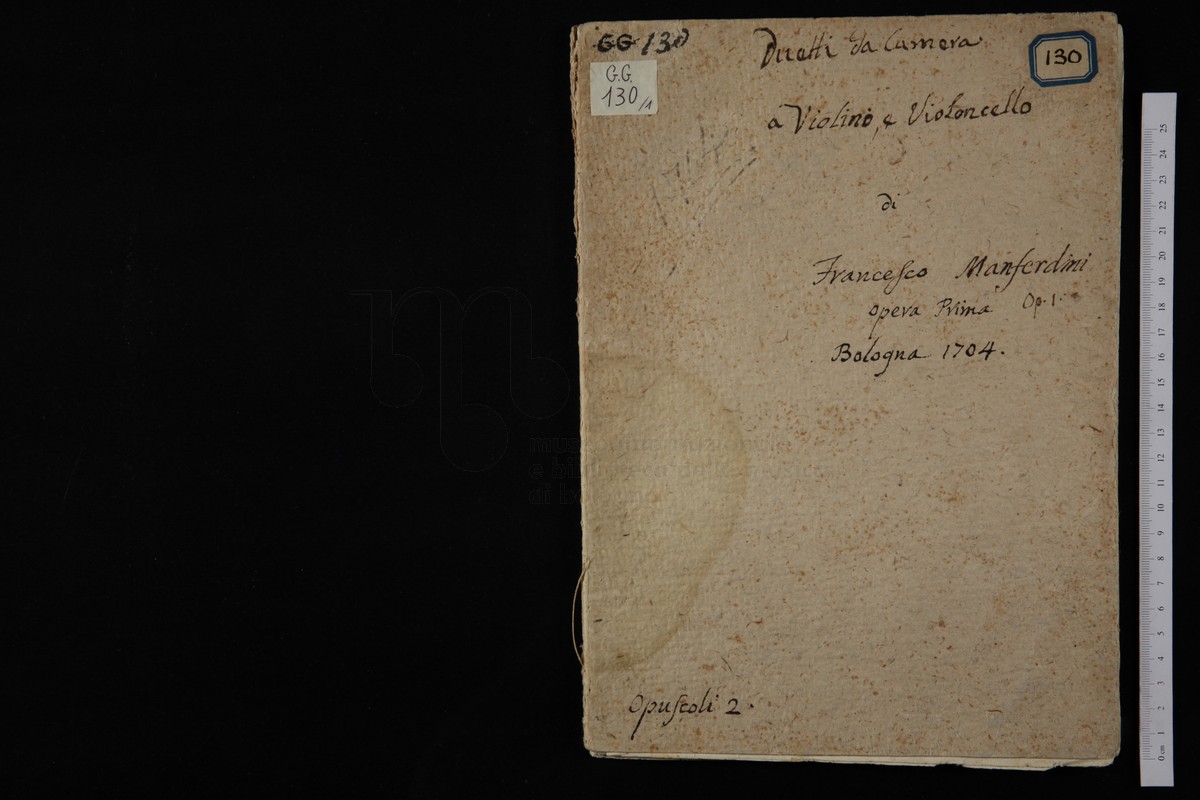 GG 130
G.G.
130/1
130
Duetti da Camera
a Violino, e Violoncello
di
Francesco Manferdini
opera Prima Op. 1.
Bologna 1704.
Opuscoli 2.
museo internazionale
e biblioteca della musica
di bologna
0 cm 1 2 3 4 5 6 7 8 9 10 11 12 13 14 15 16 17 18 19 20 21 22 23 24 25